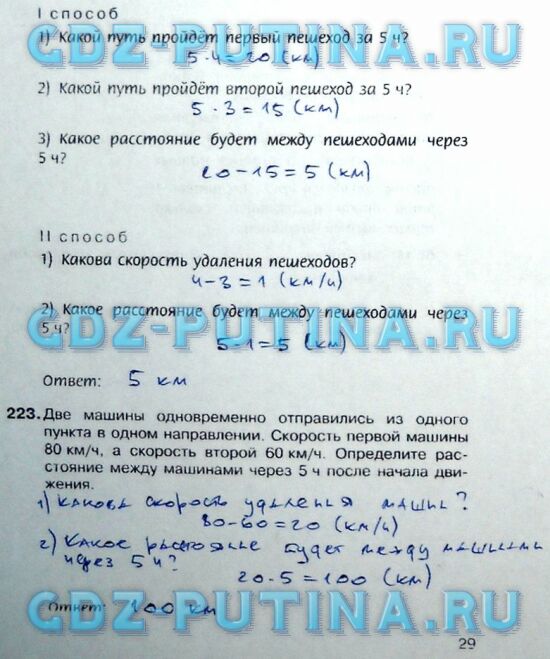 I способ
1) Какой путь пройдёт первый пешеход за 5 ч?
GDZ-PUTINA.RU
5 · 4 = 20 (км)
2) Какой путь пройдёт второй пешеход за 5 ч?
5 · 3 = 15 (км)
3) Какое расстояние будет между пешеходами через
5 ч?
20 - 15 = 5 (км)
II способ
1) Какова скорость удаления пешеходов?
4 - 3 = 1 (км/ч)
2) Какое расстояние будет между пешеходами через
GDZ-PUTINA.RU
5 ч?
5 · 1 = 5 (км)
Ответ: 5 км
223. Две машины одновременно отправились из одного
пункта в одном направлении. Скорость первой машины
80 км/ч, а скорость второй 60 км/ч. Определите рас-
стояние между машинами через 5 ч после начала дви-
жения.
1) Какова скорость удаления машин?
80 - 60 = 20 (км/ч)
2) Какое расстояние будет между машинами
через 5 ч?
20 · 5 = 100 (км)
Ответ: 100 км
GDZ-PUTINA.RU
29